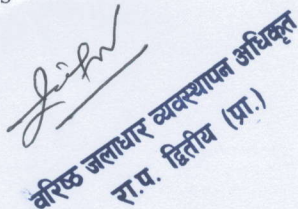 वरिष्ठ जलाधार व्यवस्थापन अधिकृत
रा.प. द्वितीय (प्रा.)